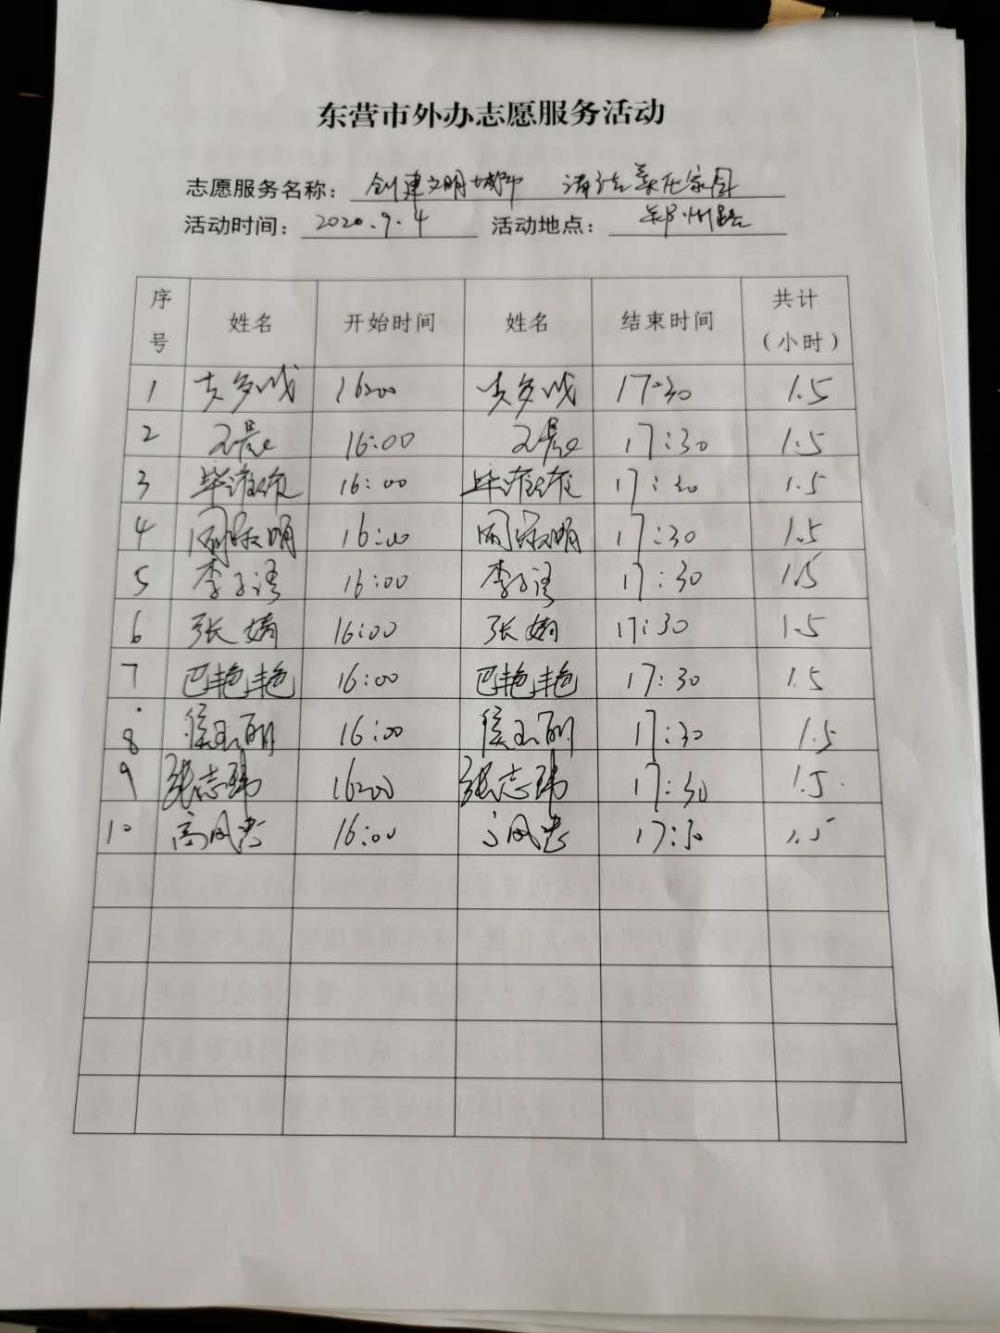 东营市外办志愿服务活动
志愿服务名称： 创建文明城市 清洁美化家园
活动时间： 2020.9.4 活动地点： 郑州路
序号 姓名 开始时间 姓名 结束时间 共计（小时）
1 16:00 17:30 1.5
2 王晨 16:00 王晨 17:30 1.5
3 毕 16:00 毕 17:30 1.5
4 16:00 17:30 1.5
5 李子语 16:00 李子语 17:30 1.5
6 张娟 16:00 张娟 17:30 1.5
7 巴艳艳 16:00 巴艳艳 17:30 1.5
8 侯玉丽 16:00 侯玉丽 17:30 1.5
9 张志玮 16:00 张志玮 17:30 1.5
10 高风 16:00 高风 17:30 1.5